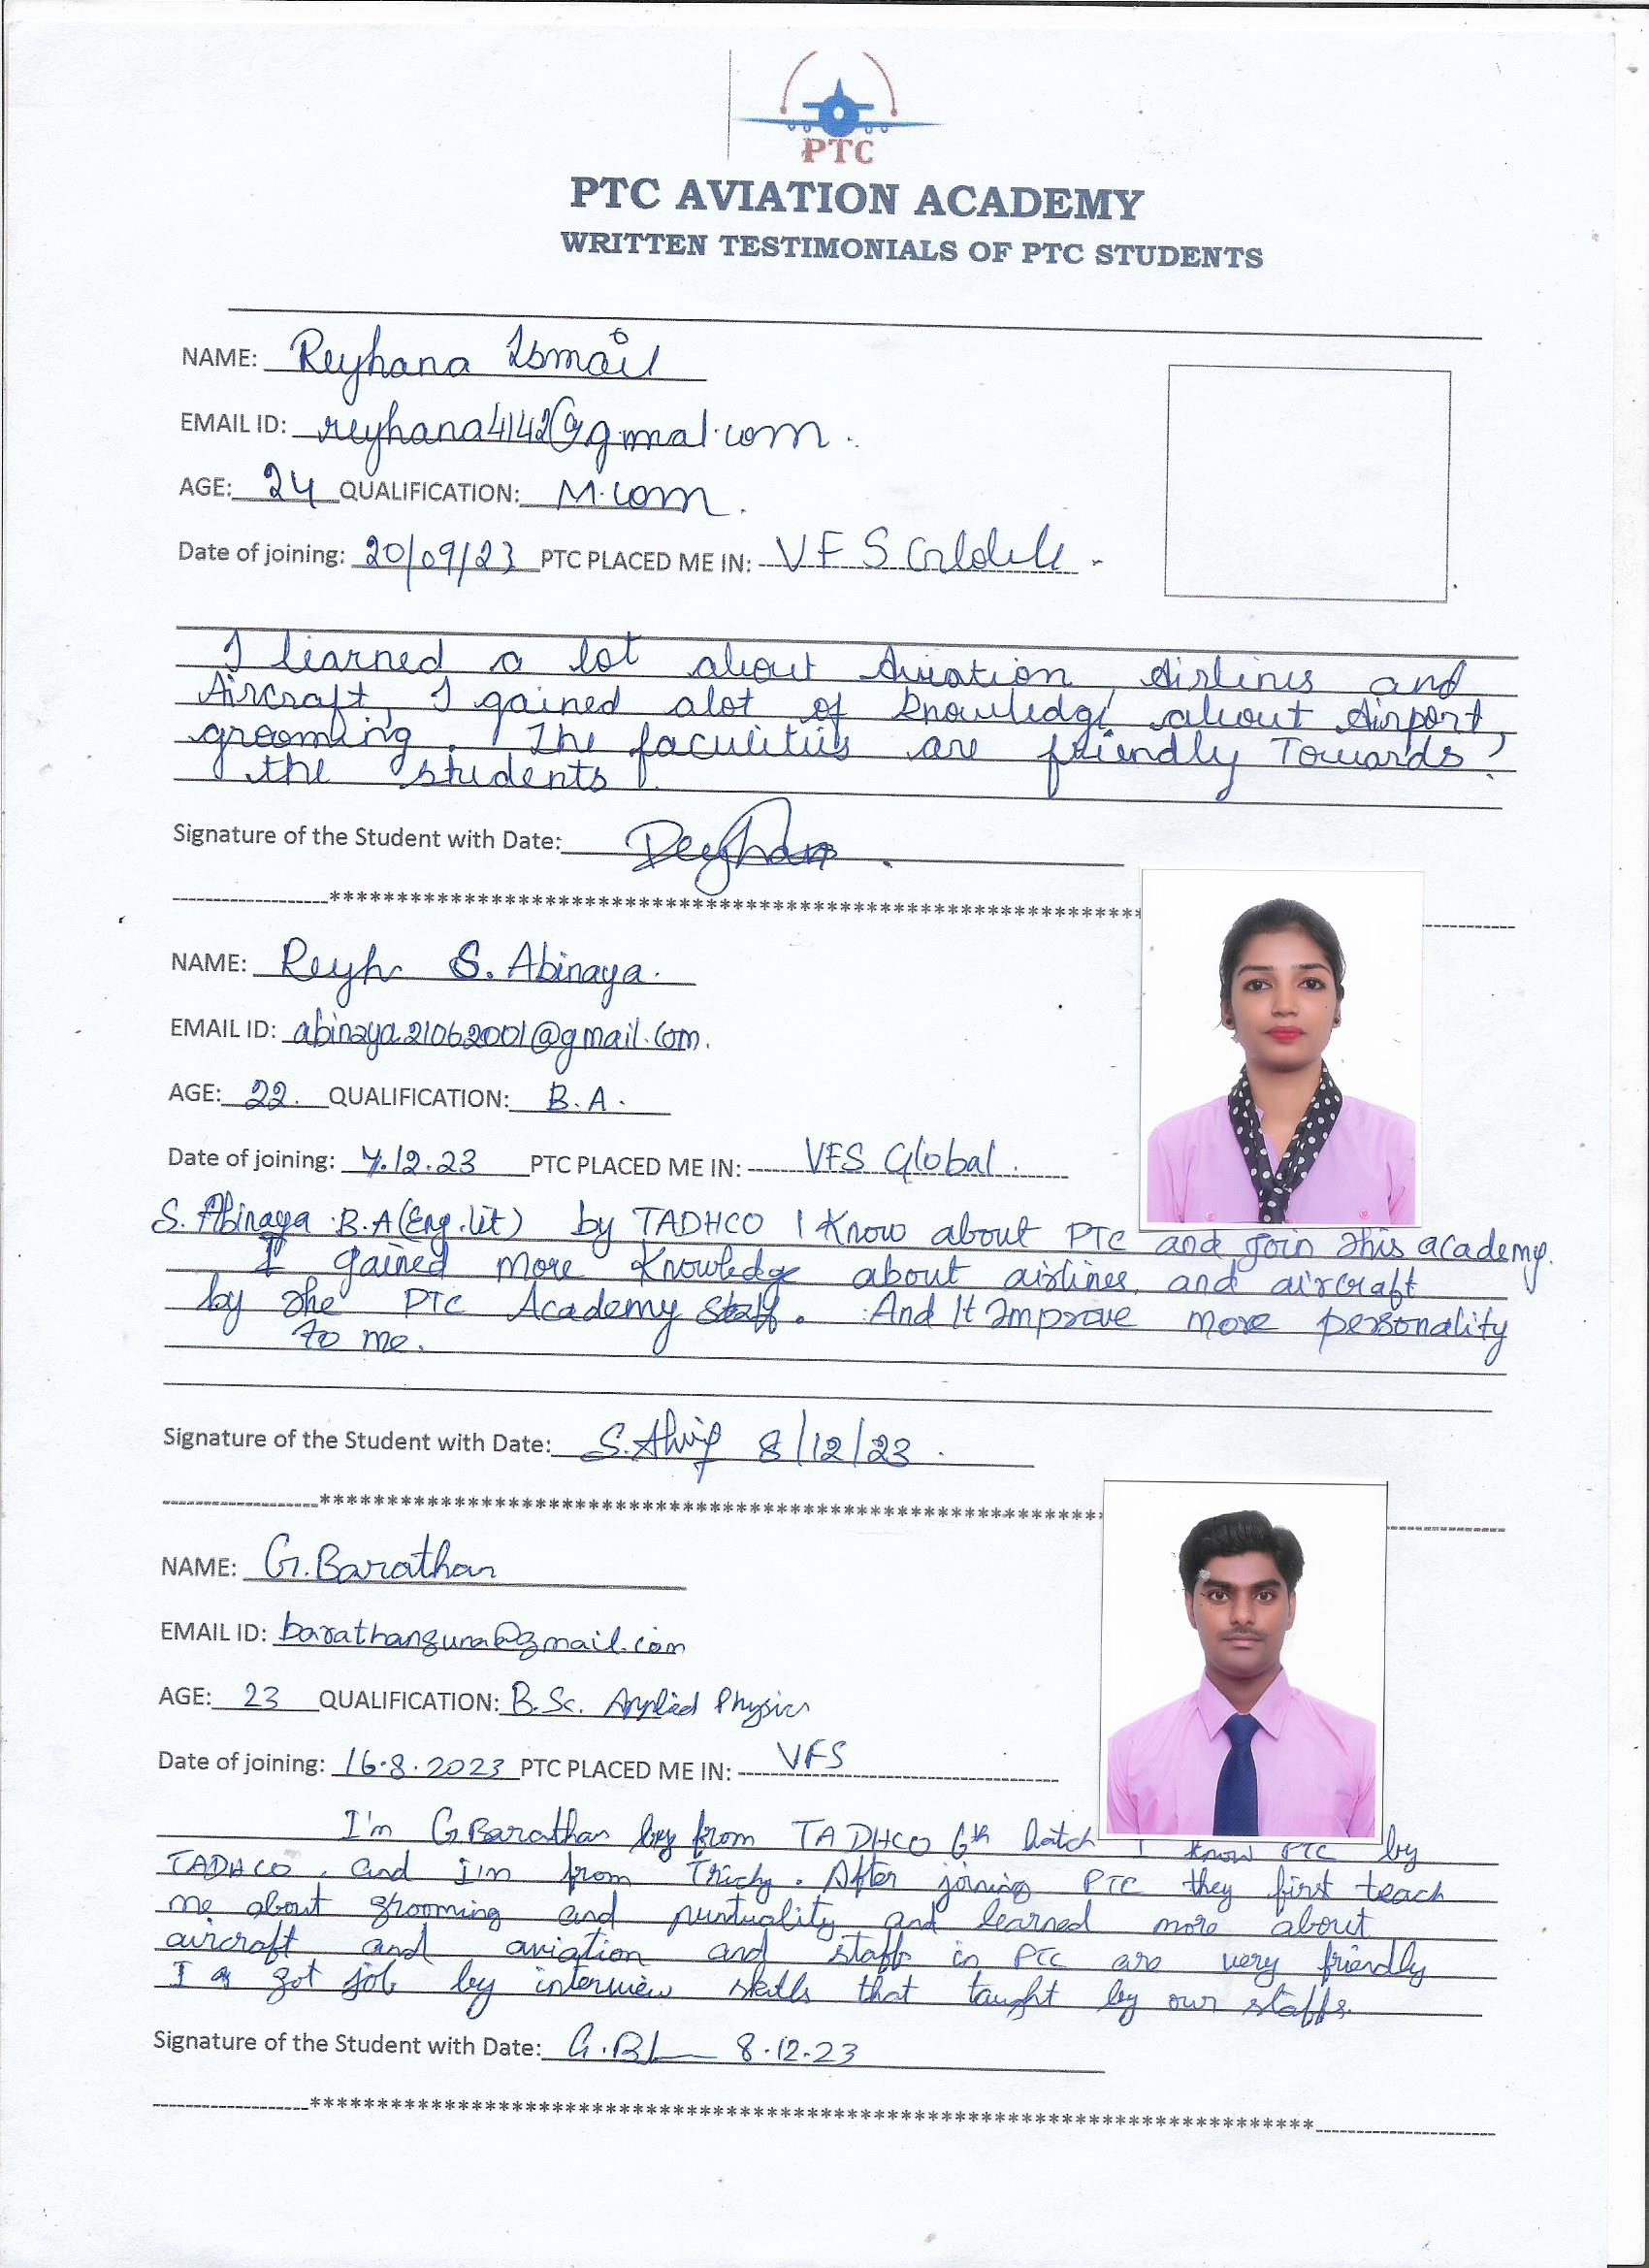 PTC
PTC AVIATION ACADEMY
WRITTEN TESTIMONIALS OF PTC STUDENTS
NAME: Reyhana Ismail
EMAIL ID: reyhana4142@gmal.com.
AGE: 24 QUALIFICATION: M.com.
Date of joining: 20/09/23 PTC PLACED ME IN: VFS
I learned a lot about Aviation, Airlines and
Aircraft, I gained alot of knowledge about Airport,
grooming. The faculities are friendly Towards
the students.
Signature of the Student with Date:
--------------------***************************************************************--------------
NAME: Reyh S. Abinaya.
EMAIL ID: abinaya21062001@gmail.com.
AGE: 22. QUALIFICATION: B.A.
Date of joining: 7.12.23 PTC PLACED ME IN: VFS Global.
S. Abinaya B.A(Eng.lit) by TADHCO I Know about PTC and Join this academy.
I gained more Knowledge about airlines, and aircraft
by the PTC Academy staff. And It Improve more personality
To me.
Signature of the Student with Date: 8/12/23.
--------------------***************************************************************--------------
NAME: G.Barathan
EMAIL ID: barathanguna@gmail.com
AGE: 23 QUALIFICATION: B.Sc. Applied Physics
Date of joining: 16.8.2023 PTC PLACED ME IN: VFS
I'm G.Barathan from TADHCO 6th batch I know PTC by
TADHCO, and I'm from Trichy. After joining PTC they first teach
me about grooming and puntuality and learned more about
aircraft and aviation and staffs in PTC are very friendly
I got job by interview skills that taught by our staffs.
Signature of the Student with Date: 8.12.23
--------------------******************************************************************************--------------------